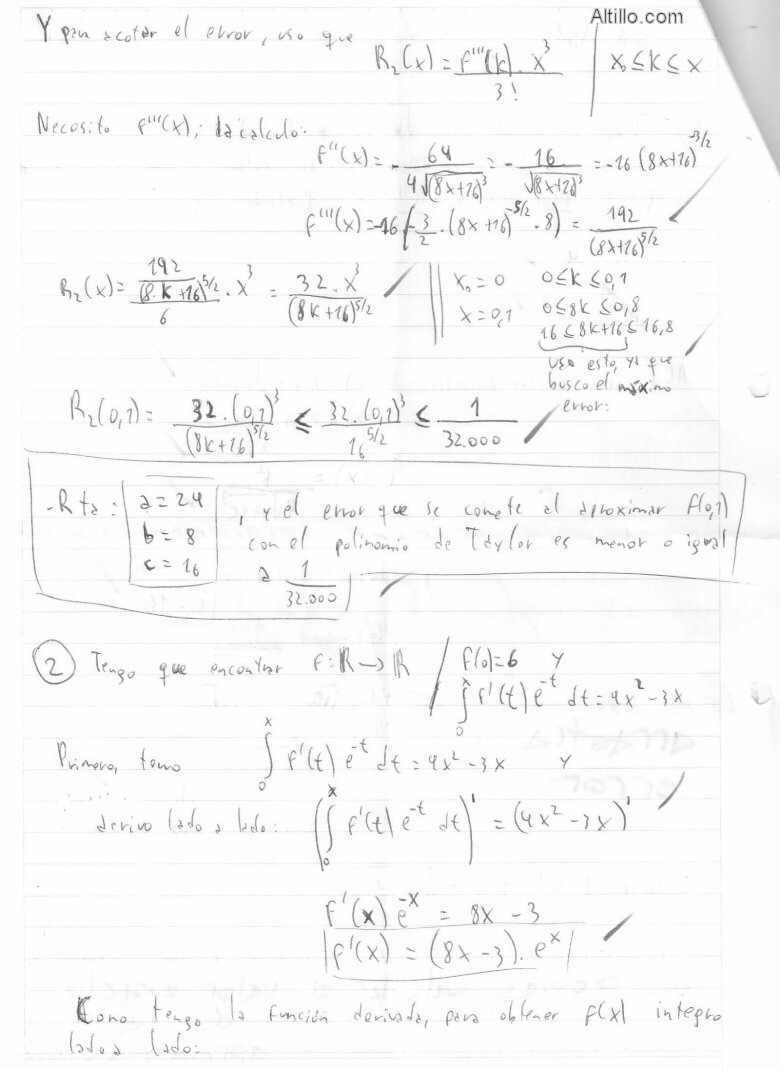 Altillo.com
Y para acotar el error, uso que
R₂(x) = f'''(k) . x³ / 3! | x₀ ≤ k ≤ x
Necesito f'''(x); la calculo:
f''(x) = - 64 / 4√(8x+16)³ = - 16 / √(8x+16)³ = -16 (8x+16)^-3/2
f'''(x) = -16 (-3/2 . (8x+16)^-5/2 . 8) = 192 / (8x+16)^5/2
R₂(x) = 192 / (8.k+16)^5/2 / 6 . x³ = 32 . x³ / (8k+16)^5/2
x₀ = 0 0 ≤ k ≤ 0,1
x = 0,1 0 ≤ 8k ≤ 0,8
16 ≤ 8k+16 ≤ 16,8
uso esto, ya que
busco el máximo
error:
R₂(0,1) = 32 . (0,1)³ / (8k+16)^5/2 ≤ 32 . (0,1)³ / 16^5/2 ≤ 1 / 32.000
- Rta: a = 24 , y el error que se comete al aproximar f(0,1)
b = 8 con el polinomio de Taylor es menor o igual
c = 16 a 1 / 32.000
2 Tengo que encontrar f: ℝ → ℝ / f(0) = 6 y
∫₀ˣ f'(t) e^-t dt = 4x² - 3x
Primero, tomo ∫₀ˣ f'(t) e^-t dt = 4x² - 3x y
derivo lado a lado: (∫₀ˣ f'(t) e^-t dt)' = (4x² - 3x)'
f'(x) e^-x = 8x - 3
f'(x) = (8x - 3) . e^x
Como tengo la función derivada, para obtener f(x) integro
lado a lado: